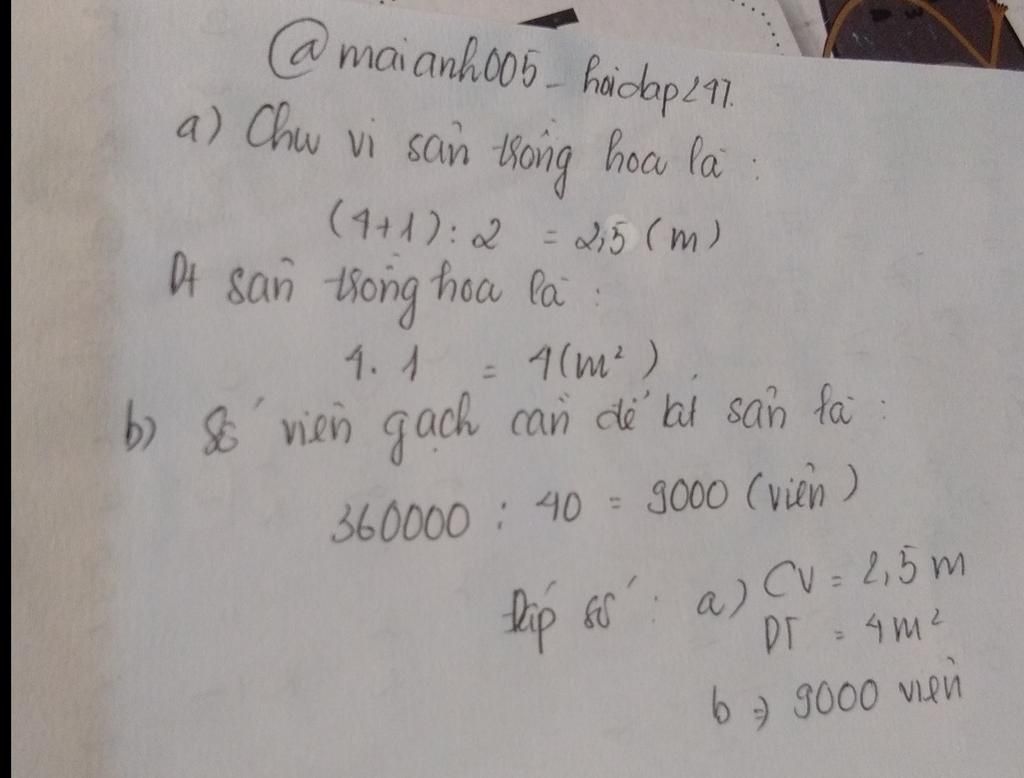 @maianh005_hoidap247.
a) Chu vi sân trồng hoa là :
(4+1) : 2 = 2,5 (m)
Dt sân trồng hoa là :
4. 1 = 4(m²)
b) Số viên gạch cần để lát sân là :
360000 : 40 = 9000 (viên)
Đáp số : a) CV = 2,5 m
DT = 4m²
b => 9000 viên